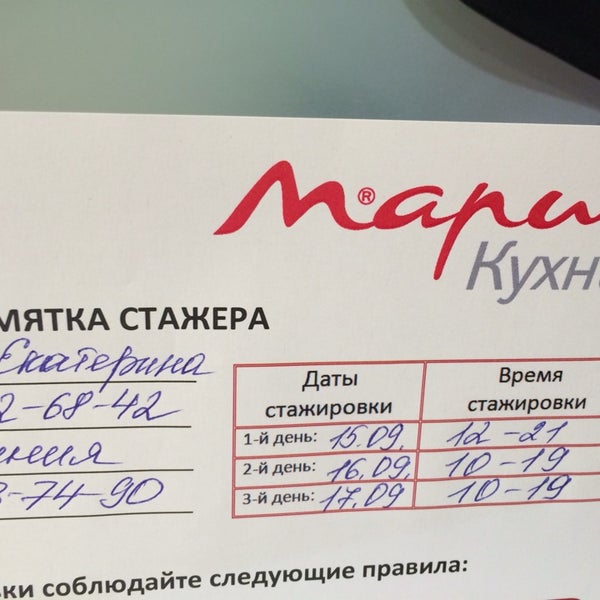 Мари
Кухн
МЯТКА СТАЖЕРА
Екатерина
2-68-42
ния
3-74-90
Даты стажировки
Время стажировки
1-й день: 15.09. 12-21
2-й день: 16.09. 10-19
3-й день: 17.09 10-19
ки соблюдайте следующие правила: